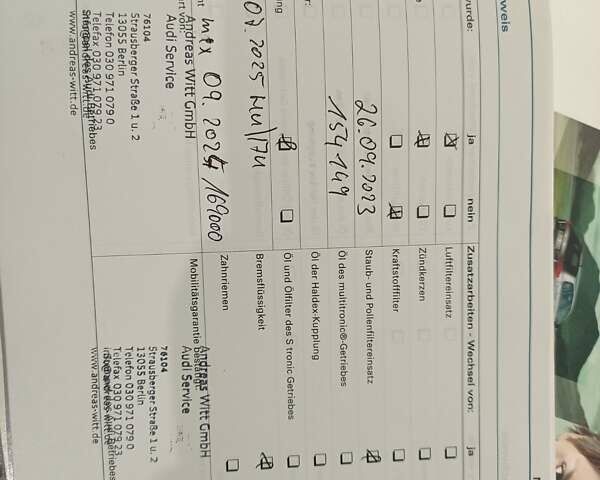 weis
wurde:
ja
nein
Zusatzarbeiten - Wechsel von:
ja
Luftfiltereinsatz
Zündkerzen
Kraftstofffilter
26.09.2023
Staub- und Pollenfiltereinsatz
154149
Öl des multitronic®-Getriebes
Öl der Haldex-Kupplung
Öl und Ölfilter des S tronic Getriebes
2025
Bremsflüssigkeit
09.2024 / 169000
Zahnriemen
Mobilitätsgarantie bestätigt
Andreas Witt GmbH
Audi Service
76104
Strausberger Straße 1 u. 2
13055 Berlin
Telefon 030 971 079 0
Telefax 030 971 079 23
www.andreas-witt.de
Andreas Witt GmbH
Audi Service
76104
Strausberger Straße 1 u. 2
13055 Berlin
Telefon 030 971 079 0
Telefax 030 971 079 23
www.andreas-witt.de